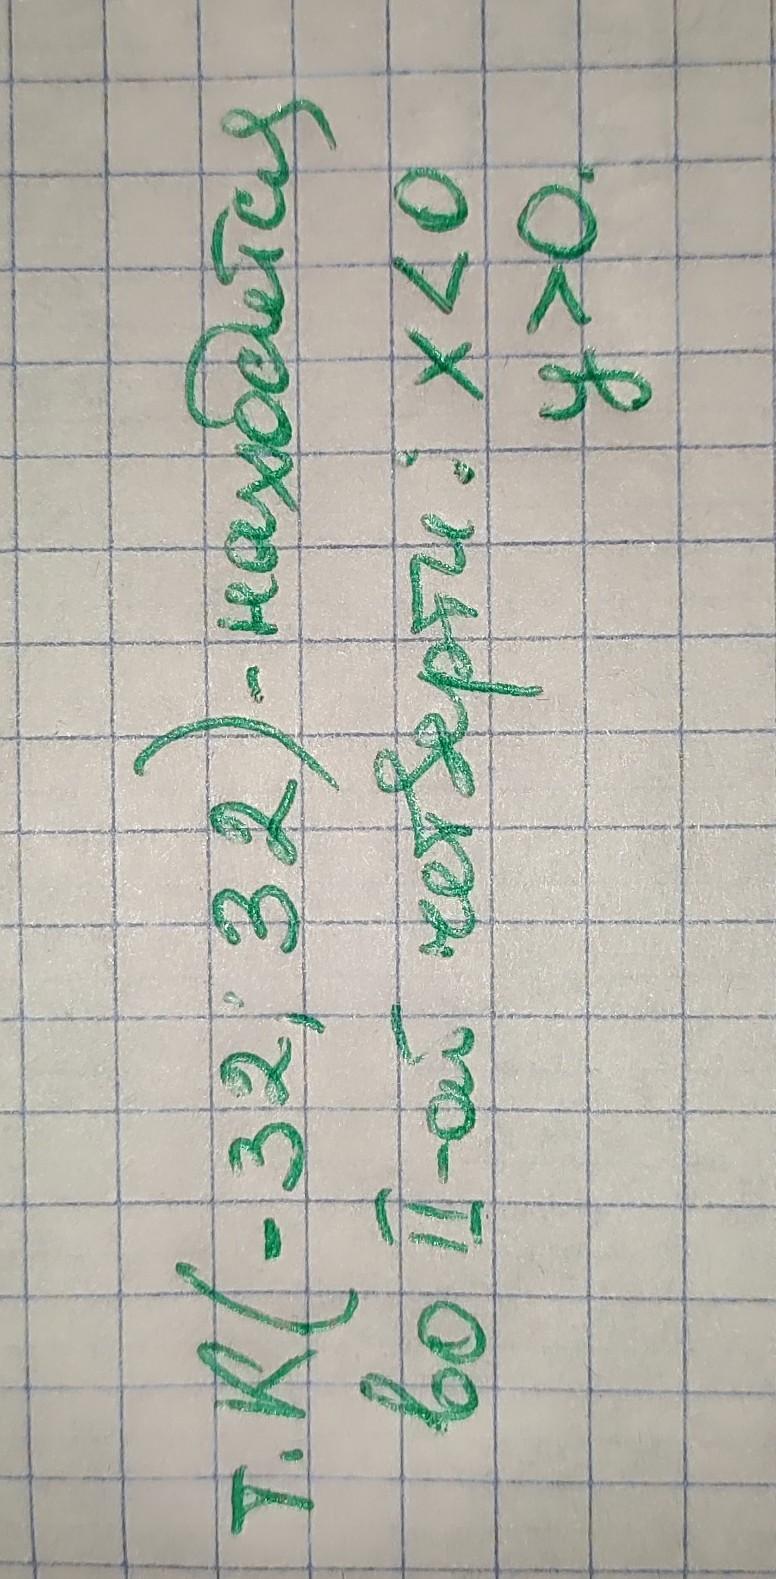 т. К(-32; 32) - находится
во II-ой четверти: x<0
y>0.